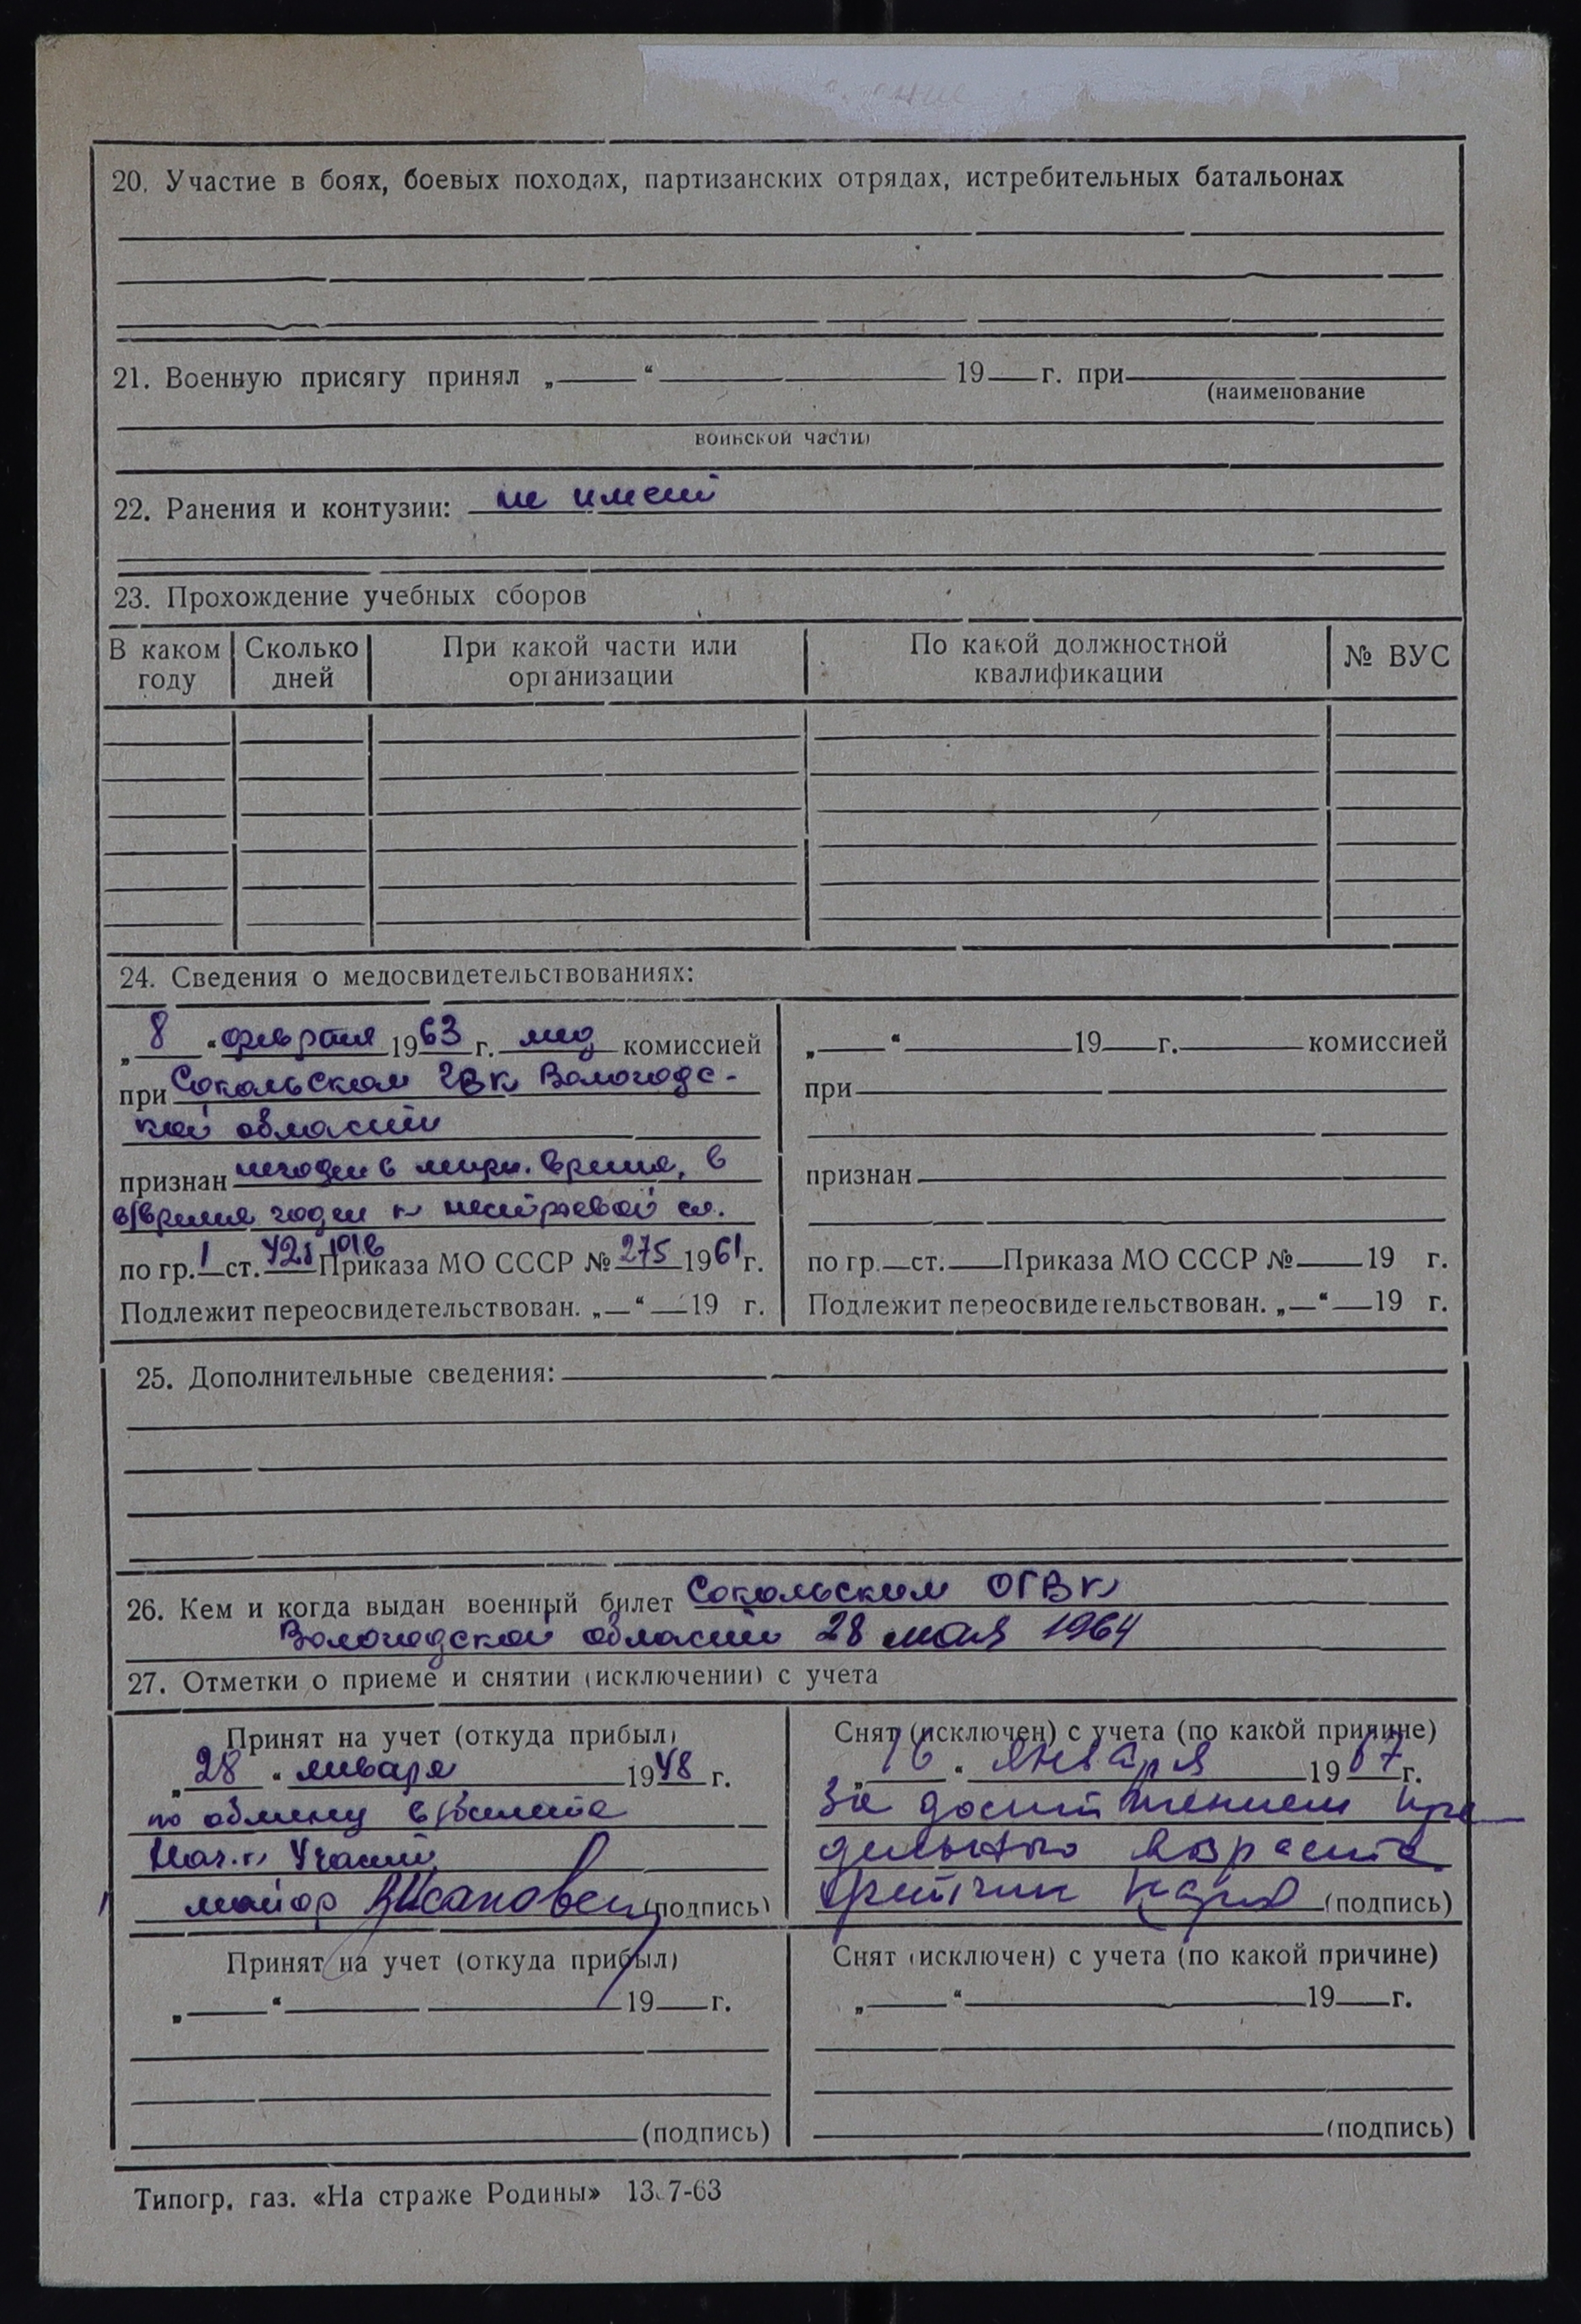 20. Участие в боях, боевых походах, партизанских отрядах, истребительных батальонах
21. Военную присягу принял „ “ 19 г. при
(наименование
воинской части)
22. Ранения и контузии: не имеет
23. Прохождение учебных сборов
В каком году Сколько дней При какой части или организации По какой должностной квалификации № ВУС
24. Сведения о медосвидетельствованиях:
„8“ февраля 1963 г. мед комиссией
при Сокольском ГВК Вологодс-
кой области
признан негоден в мирн. время, в
в/время годен к нестроевой сл.
по гр. 1 ст. Приказа МО СССР № 275 1961 г.
Подлежит переосвидетельствован. „ “ 19 г.
„ “ 19 г. комиссией
при
признан
по гр. ст. Приказа МО СССР № 19 г.
Подлежит переосвидетельствован. „ “ 19 г.
25. Дополнительные сведения:
26. Кем и когда выдан военный билет Сокольским ОГВК
Вологодской области 28 мая 1964
27. Отметки о приеме и снятии (исключении) с учета
Принят на учет (откуда прибыл)
„28“ января 1948 г.
по обмену в/билета
майор (подпись)
Снят (исключен) с учета (по какой причине)
„16“ января 1967 г.
За достижением пре-
дельного возраста
(подпись)
Принят на учет (откуда прибыл)
„ “ 19 г.
(подпись)
Снят (исключен) с учета (по какой причине)
„ “ 19 г.
(подпись)
Типогр. газ. «На страже Родины» 13 7-63